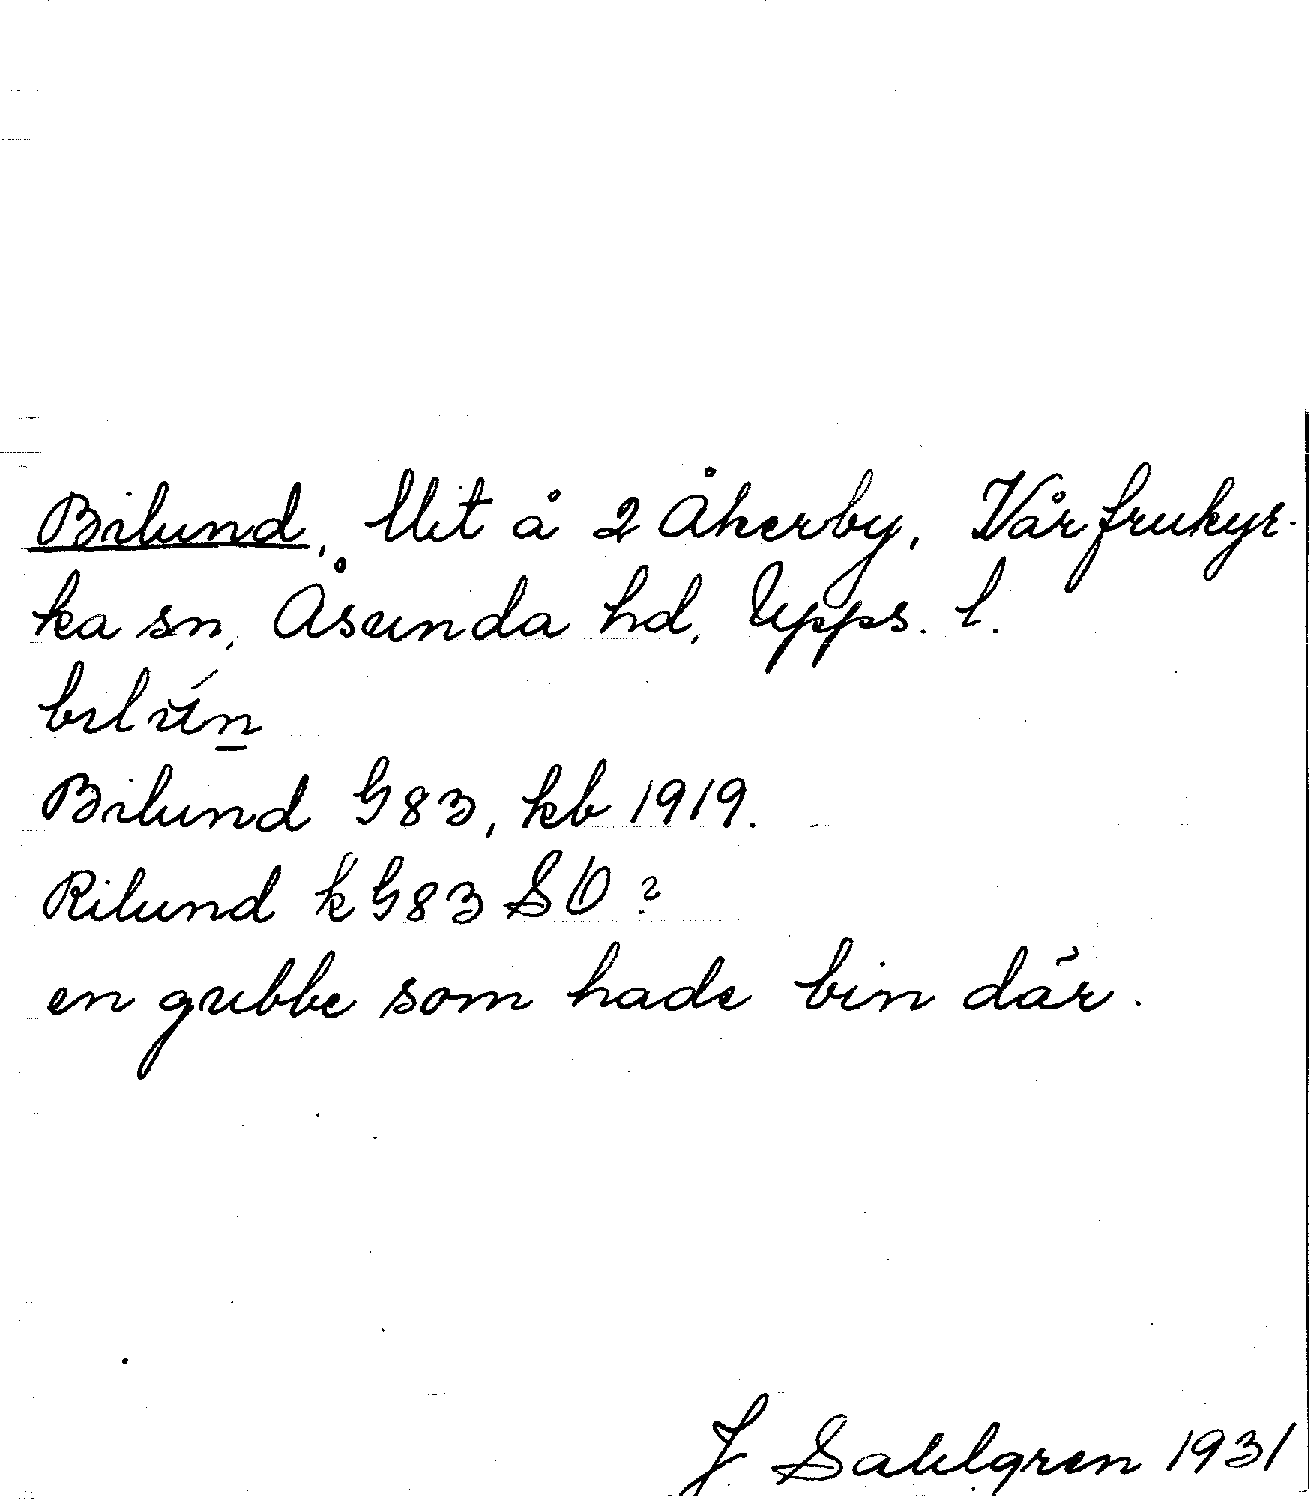 Bilund, Utlt å 2 Åkerby, Vårfrukyr-
ka sn, Åsunda hd, Upps. l.
bilún
Bilund G83, kb 1919.
Rilund k G83 SO?
en gubbe som hade bin där.
J Sahlgren 1931